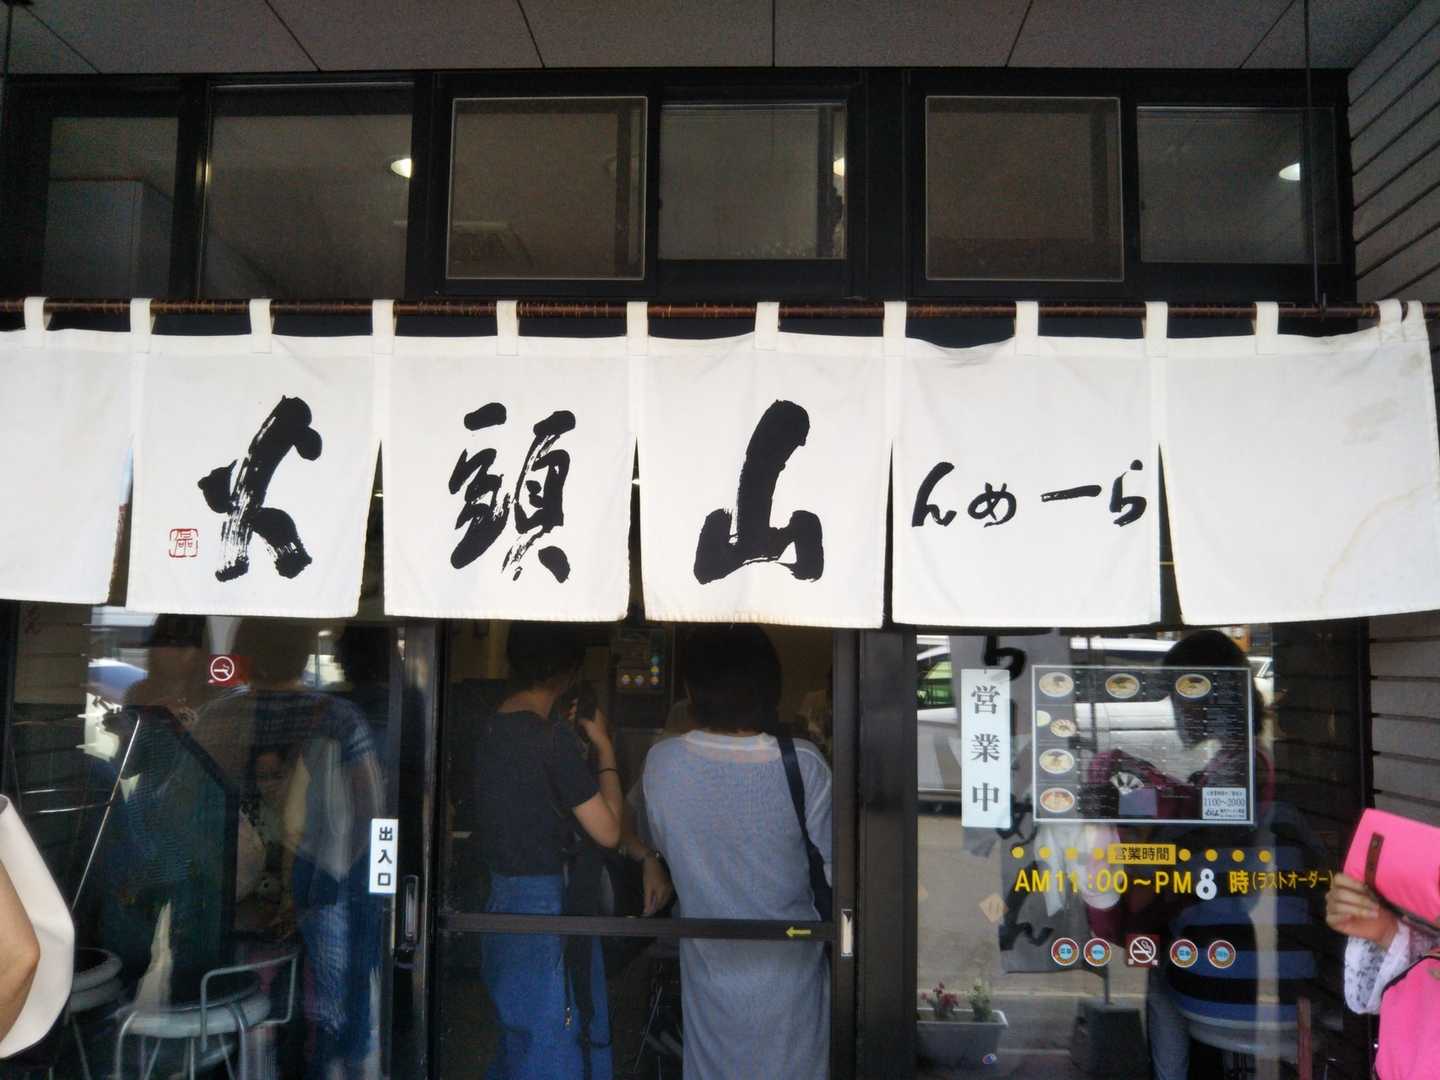 らーめん 山頭火
営業中
出入口
11:00～20:00
営業時間
AM11:00～PM8時(ラストオーダー)